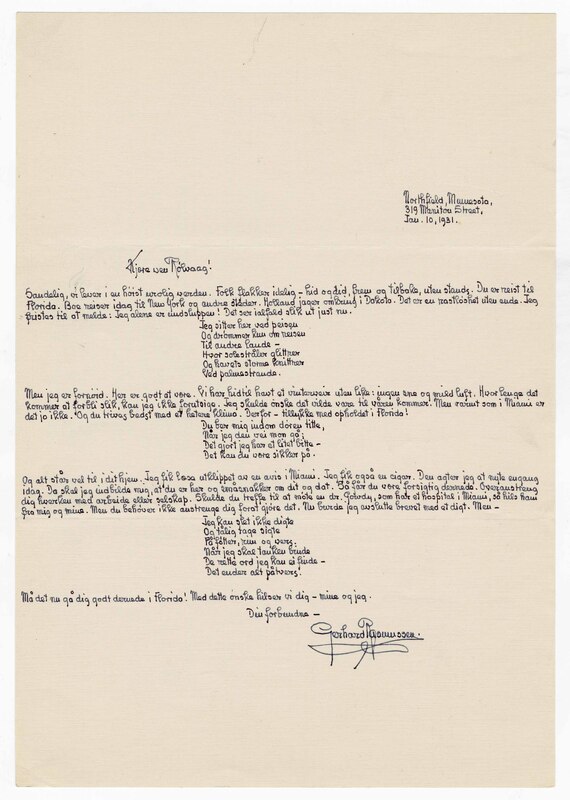 Northfield, Minnesota,
319 Manitou Street,
Jan. 10, 1931.
Kjære ven Rölvaag!
Sandelig, vi lever i en höist urolig verden. Folk flakker idelig – hid og did, frem og tilbake, uten stands. Du er reist til
Florida. Boe reiser idag til New York og andre stæder. Holland jager omkring i Dakota. Det er en rastlöshet uten ende. Jeg
fristes til at melde: Jeg alene er undsluppen! Det ser ialfald slik ut just nu.
Jeg sitter her ved peisen
Og drömmer kun om reisen
Til andre lande –
Hvor solestråler glittner
Og havets storme knittner
Ved palmestrande.
Men jeg er fornöid. Her er godt at være. Vi har hidtil havt et vinterveir uten like: ingen sne og mild luft. Hvor lenge det
kommer at forbli slik, kan jeg ikke forutsige. Jeg skulde önske det vilde vare til våren kommer. Men varmt som i Miami er
det jo ikke. Og du trives bedst med et hetere klima. Derfor – tillykke med opholdet i Florida!
Du bær mig indom dören titte,
Når jeg den vei mon gå;
Det gjort jeg har et litet bitte –
Det kan du være sikker på.
Og alt står vel til i dit hjem. Jeg fik læse utklippet av en avis i Miami. Jeg fik også en cigar. Den agter jeg at nyte engang
idag. Da skal jeg indbilde mig, at du er her og småsnakker om dit og dat. Så får du være forsigtig dernede. Overanstreng
dig hverken med arbeide eller selskap. Skulde du træffe til at möte en dr. Gowdy, som har et hospital i Miami, så hils ham
fra mig og mine. Men du behöver ikke anstrenge dig for at gjöre det. Nu burde jeg avslutte brevet med et digt. Men –
Jeg kan slet ikke digte
Og tålig tage sigte
På fötter, rim og vers;
Når jeg skal tanken binde
De rette ord jeg kan ei finde –
Det ender alt påtvers.
Må det nu gå dig godt dernede i Florida! Med dette önske hilser vi dig – mine og jeg.
Din forbundne –
Gerhard Rasmussen.